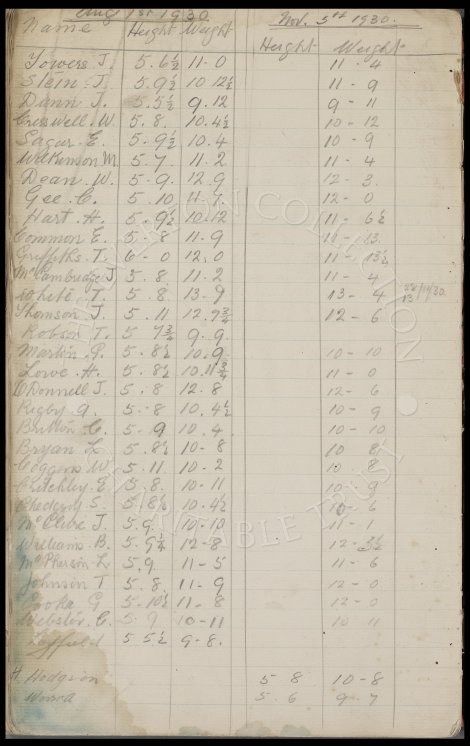 Aug 1st 1930. Nov. 5th 1930.
Name Height Weight Height Weight
Towers J. 5. 6½ 11-0 11 - 4
Stein J. 5. 9½ 10.12½ 11 - 9
Dunn J. 5.5½ 9.12 9 - 11
Creswell. W. 5. 8. 10.4½ 10 - 12
Sagar. E. 5. 9½ 10.4 10 - 9
Wilkinson M. 5. 7 11.2 11 - 4
Dean. W. 5. 9. 12.9 12 - 3.
Gee. C. 5. 10 11.7 12 - 0
Hart. H. 5. 9½ 10.12 11 - 6½
Common E. 5. 8 11.9 11 - 13.
Griffiths. T. 6 - 0 12.0 11 - 13½
McCambridge J. 5. 8. 11.2 11 - 4
White. T. 5. 8. 13 - 9 13 - 4
Thomson. J. 5. 11 12.7¾ 12 - 6
Robson T. 5 7¾ 9. 9.
Martin. G. 5. 8½ 10.9 10 - 10
Lowe. H. 5. 8½ 10.11 11 - 0
O'Donnell J. 5. 8 12.8 12 - 6
Rigby A. 5. 8 10.4½ 10 - 9
Britton C. 5. 9 10.4 10 - 10
Bryan L. 5. 8½ 10-8 10 8.
Coggins W. 5. 11. 10-2 10 8
Critchley. E. 5. 8 10-11 10 - 9
Chedgzoy. S. 5. 8½ 10.4½ 10 - 6
McClure J. 5. 9. 10-10 11 - 1
Williams. B. 5. 9¼ 12-8 12 - 3½
McPherson. L. 5. 9. 11-5 11 - 6
Johnson T 5. 8 11-9 12 - 0
Cooke G 5. 10½ 11-8 12 - 0
Webster. C. 5. 9 10-11 10 11
5 5½ 9-8.
H. Hodgson 5 - 8 10 - 8
5 - 6 9 - 7
EVERTON COLLECTION CHARITABLE TRUST